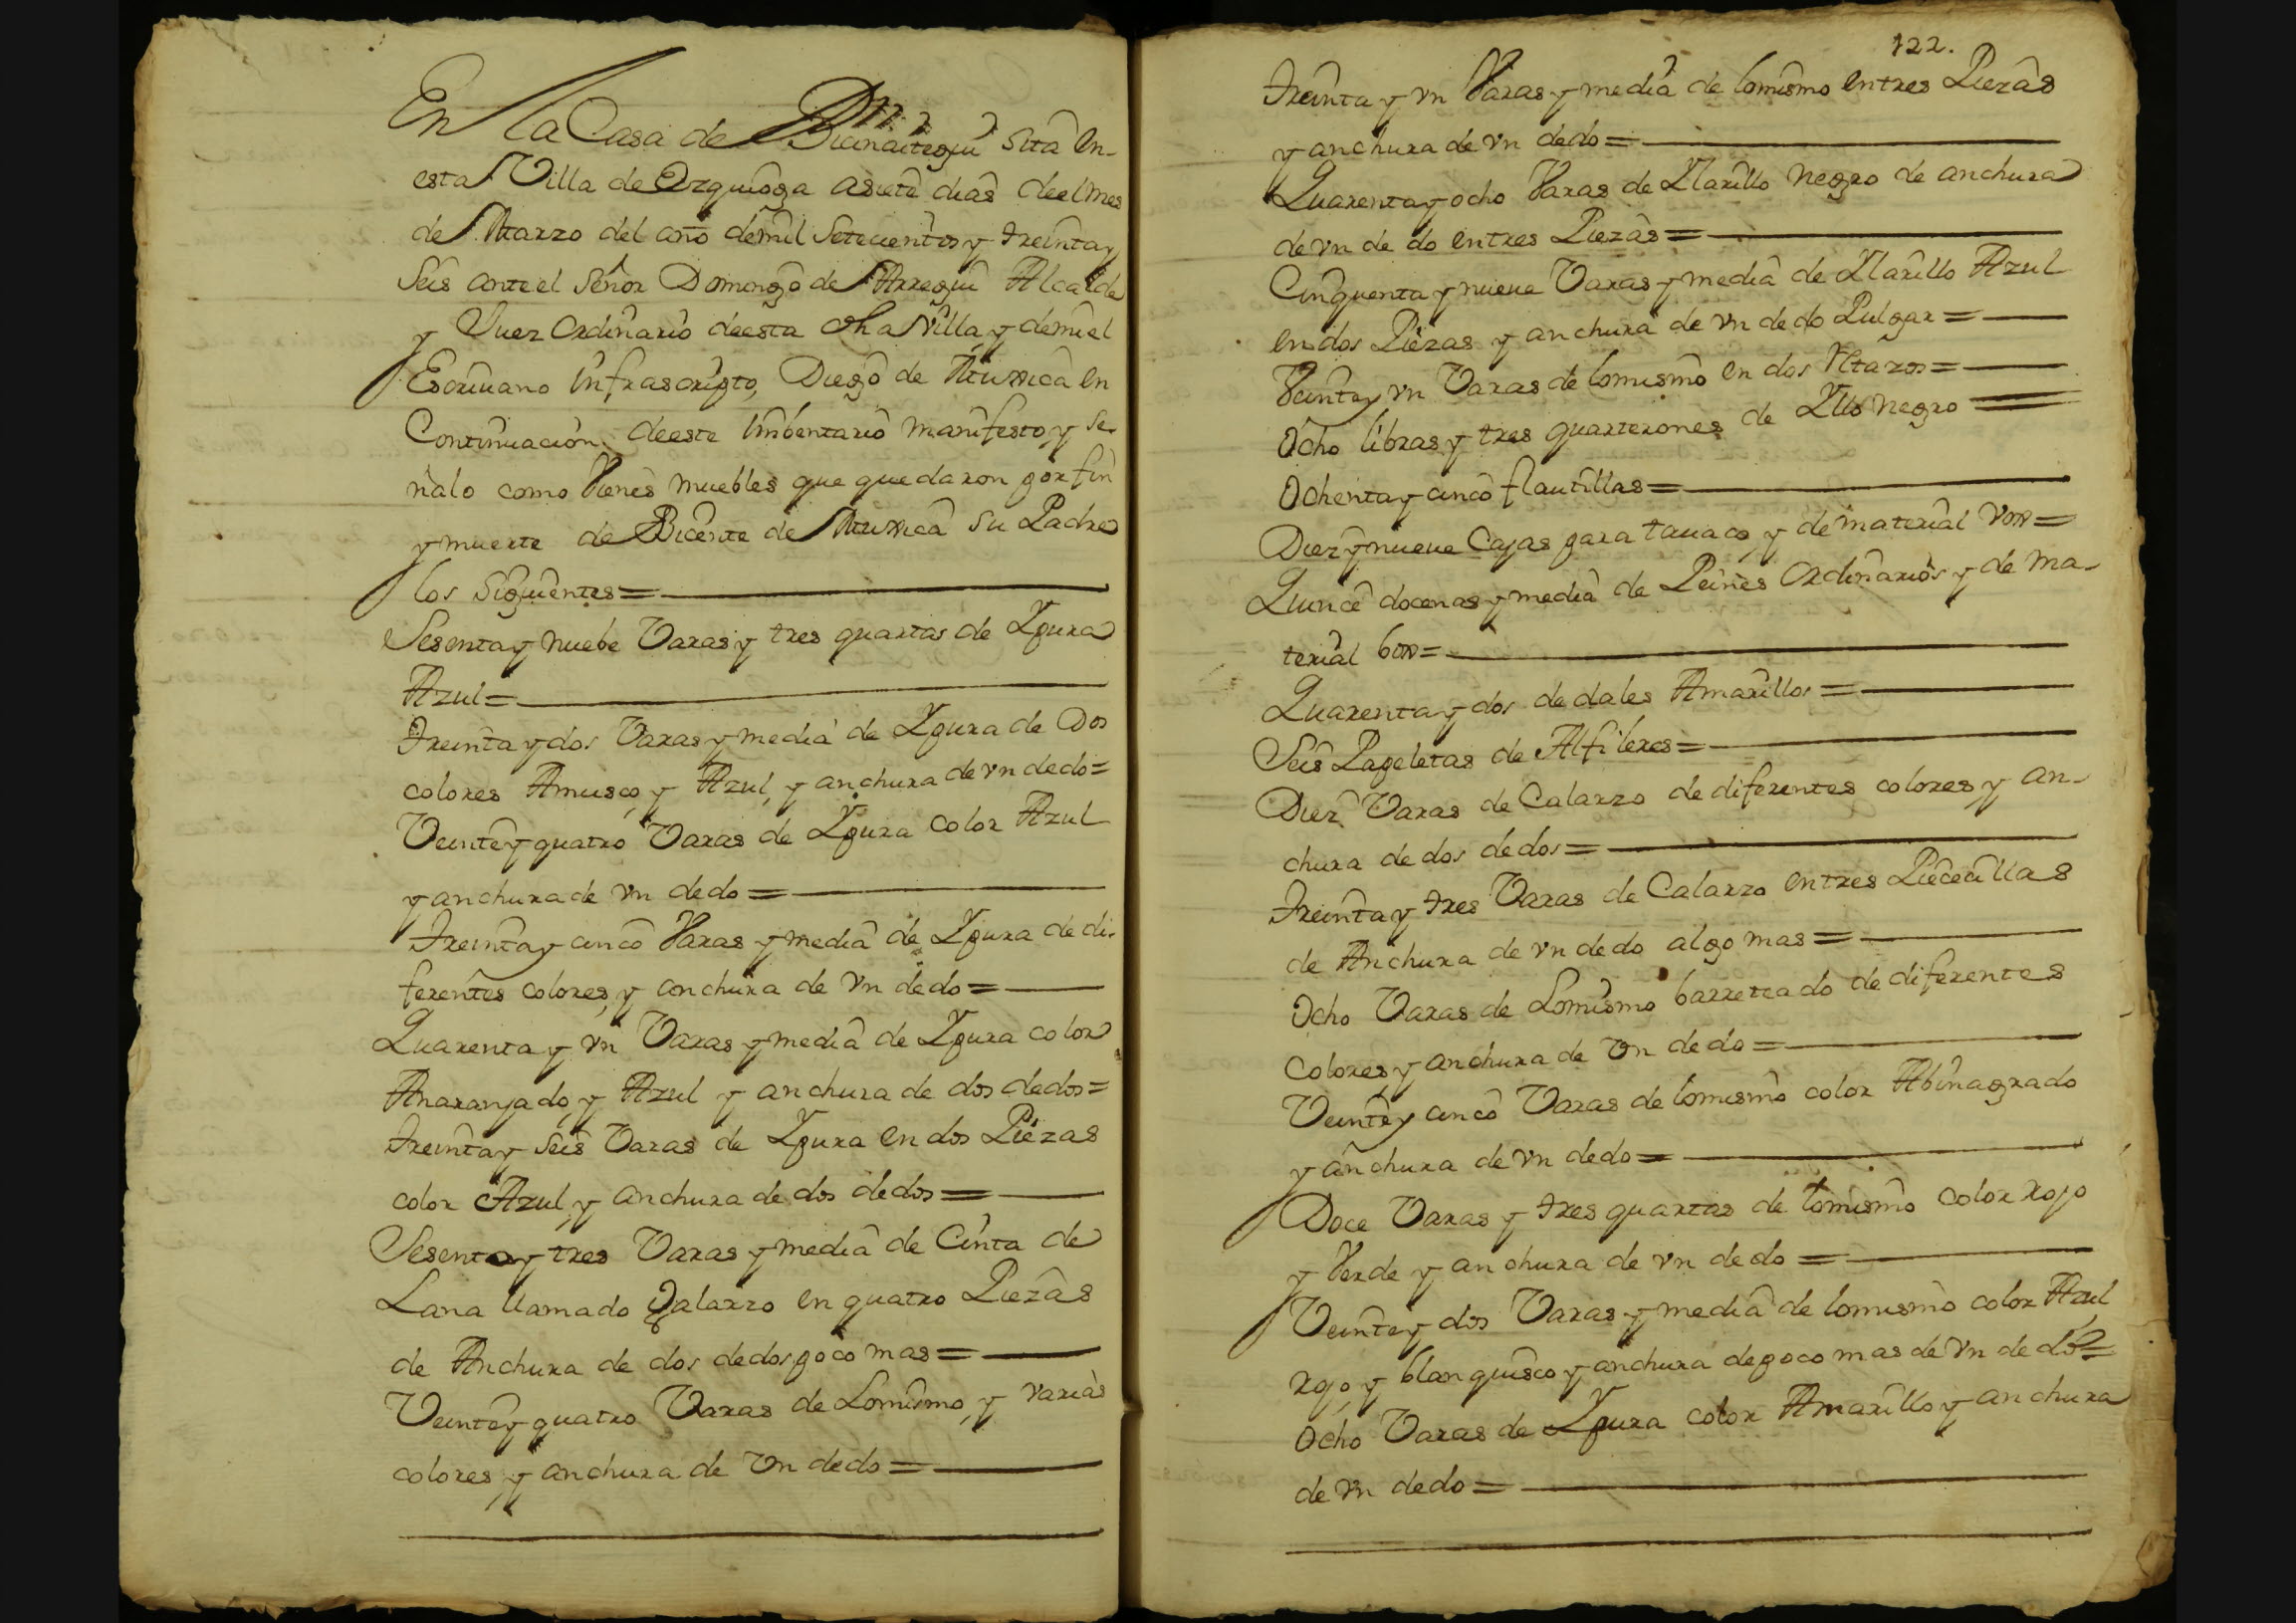 En la Casa de Bicinaitegui sita en
esta Villa de Ozquiosga asiete dias de el mes
de Marzo del año demil Setecientos y treinta y
seis ante el Señor Domingo de Arregui Alcalde
y Juez Ordinario deesta dha Villa y demi el
Escriuano Infrascripto, Diego de Murrica en
Continuacion deeste Imbentario manifesto y se
ñalo como Vienes muebles que quedaron por fin
y muerte de Bicente de Murrica su Padre
los Siguientes =
Sesenta y nuebe Varas y tres quartas de Ypura
Azul =
Treinta y dos Varas y media de Ypura de Dos
colores Amusco, y Azul, y anchura de vn dedo =
Veinte y quatro Varas de Ypura color Azul
y anchura de vn dedo =
Treinta y cinco Varas y media de Ypura de di-
ferentes colores, y anchura de vn dedo =
Quarenta y vn Varas y media de Ypura color
Anaranjado, y Azul y anchura de dos dedos =
Treinta y seis Varas de Ypura en dos Piezas
color Azul, y anchura de dos dedos =
Sesenta y tres Varas y media de Cinta de
Lana llamado Galarzo en quatro Piezas
de Anchura de dos dedos poco mas =
Veinte y quatro Varas de Lomismo, y varias
colores, y anchura de Vn dedo =
122.
Treinta y vn Varas y media de lomismo en tres Piezas
y anchura de vn dedo =
Quarenta y ocho Varas de Ylarillo negro de anchura
de vn de do en tres Piezas =
Cinquenta y nueue Varas y media de Ylarillo Azul
en dos Piezas y anchura de vn dedo Pulgar =
Veinte y vn Varas de lomismo en dos Retazos =
Ocho libras y tres quarterones de Yllo negro =
Ochenta y cinco flautillas =
Diez y nueue Cajas para tauaco, y de material Vox =
Quince docenas y media de Peines Ordinarios y de ma-
terial box =
Quarenta y dos dedales Amarillos =
Seis Papeletas de Alfileres =
Diez Varas de Calarzo de diferentes colores y an-
chura de dos dedos =
Treinta y tres Varas de Calarzo en tres Piececillas
de Anchura de vn dedo algo mas =
Ocho Varas de Lomismo barreteado de diferentes
Colores y anchura de Vn dedo =
Veinte y cinco Varas de lomismo color Abinagrado
y anchura de vn dedo =
Doce Varas y tres quartas de lomismo color rojo
y Verde y anchura de vn dedo =
Veinte y dos Varas y media de lomismo color Azul
rojo, y blanquisco y anchura de poco mas de vn de do =
Ocho Varas de Ypura color Amarillo y anchura
de vn dedo =